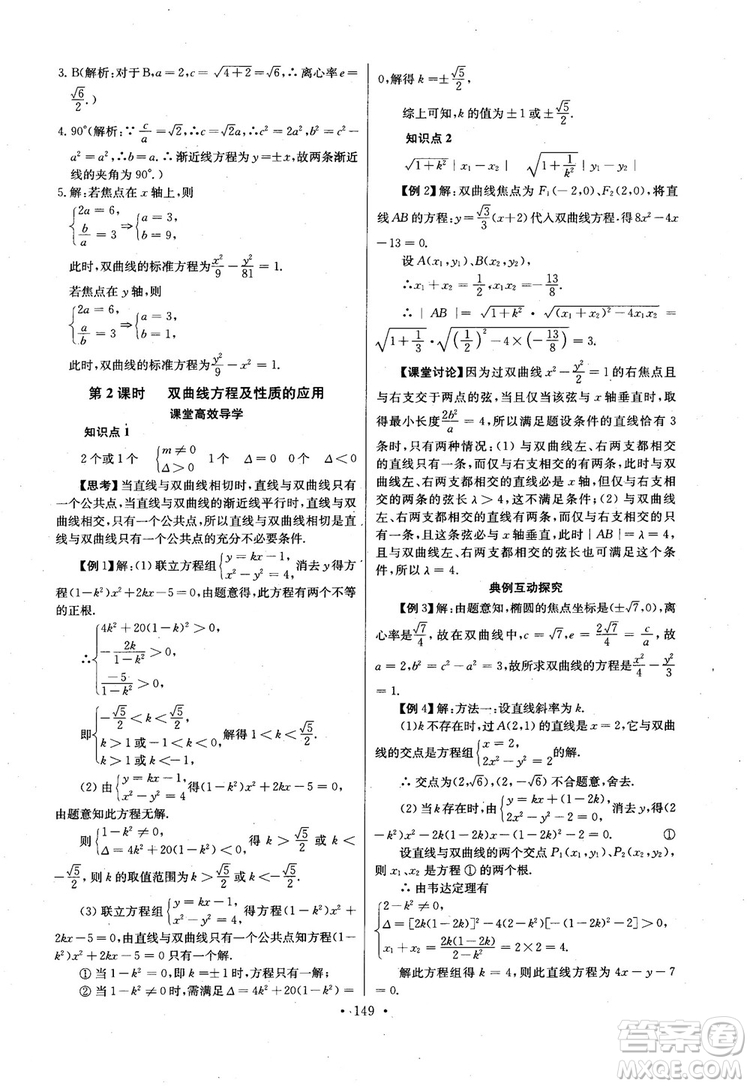 3. B(解析:对于 B,a=2,c=√(4+2)=√6,∴离心率 e=
√6/2.)
4. 90°(解析:∵ c/a=√2,∴c=√2a,∴c²=2a²,∴b²=c²-
a²=a²,∴a=b,∴渐近线方程为y=±x,故两条渐近
线的夹角为 90°.)
5. 解:若焦点在 x 轴上,则
{2a=6, b/a=3 ⇒ {a=3, b=9,
此时,双曲线的标准方程为 x²/9-y²/81=1.
若焦点在 y 轴上,则
{2a=6, a/b=3 ⇒ {a=3, b=1,
此时,双曲线的标准方程为 y²/9-x²=1.
第 2 课时 双曲线方程及性质的应用
课堂高效导学
知识点 1
2 个或 1 个 {m≠0 Δ>0 Δ=0 Δ<0
【思考】当直线与双曲线相切时,直线与双曲线只
有一个公共点,当直线与双曲线的渐近线平行时,直线与
双曲线相交,只有一个公共点,所以直线与双曲线只有一
个公共点是直线与双曲线相切的必要不充分条件.
【例 1】解:(1)联立方程组{y=kx-1, x²-y²=4, 消去 y 得方
程(1-k²)x²+2kx-5=0,由题意得,此方程有两个不等
的正根.
∴{4k²+20(1-k²)>0, -2k/(1-k²)>0, -5/(1-k²)>0,
即{-√5/2<k<√5/2, k>1 或-1<k<0, k>1 或 k<-1, 解得 1<k<√5/2.
(2)由{y=kx-1, x²-y²=4, 得(1-k²)x²+2kx-5=0,
由题意知此方程无解.
则{1-k²≠0, Δ=4k²+20(1-k²)<0, 得 k>√5/2或 k<-
√5/2,则 k 的取值范围为 k>√5/2或 k<-√5/2.
(3)联立方程组{y=kx-1, x²-y²=4, 消去 y 得方程(1-k²)x²+
2kx-5=0,由直线与双曲线有一个公共点知方程(1-
k²)x²+2kx-5=0 只有一解.
①当 1-k²=0,即 k=±1 时,方程有一解;
②当 1-k²≠0 时,需满足 Δ=4k²+20(1-k²)=
0,解得 k=±√5/2.
综上可知,k 的值为±1 或±√5/2.
知识点 2
√(1+k²)|x₁-x₂| √(1+1/k²)|y₁-y₂|
【例 2】解:双曲线焦点为 F₁(-2,0)、F₂(2,0),将直
线 AB 的方程:y=√3/3(x+2)代入双曲线方程,得 8x²-4x
-13=0.
设 A(x₁,y₁)、B(x₂,y₂),
∴x₁+x₂=1/2,x₁x₂=-13/8.
∴|AB|=√(1+k²)·√((x₁+x₂)²-4x₁x₂)=
√(1+1/3)·√((1/2)²-4×(-13/8))=3.
【课堂讨论】因为过双曲线 x²-y²/2=1 的右焦点且
与右支交于两点的弦,当且仅当该弦与 x 轴垂直时,取
得最小长度2b²/a=4,所以满足题设条件的直线恰有 3
条,有两种情况:(1)与双曲线左、右两支都相交的
的直线只有一条,而仅与右支相交的直线有两条,且与双
曲线左、右两支都相交的直线是 x 轴,但仅与右支相交的
两条直线的弦长 λ>4,这种情况不可能;(2)与双曲线
左、右两支都相交的直线有两条,而仅与右支相交的只
有一条,且与左、右两支都相交的弦长也可以满足,
且仅与右支相交的弦与 x 轴垂直,此时|AB|=4,所以
λ=4.
典例互动探究
【例 3】解:由题意知,椭圆的焦点坐标是(±√7,0),离
心率是√7/4,故在双曲线中,c=√7,e=2√7/4=c/a,故
a=2,b²=c²-a²=3,故所求双曲线的方程为x²/4-y²/3
=1.
【例 4】解:方法一:设直线斜率为 k.
(1)k 不存在时,过 A(2,1)的直线是 x=2,它与双曲
线的交点是方程组{x=2, 2x²-y²=2 的解.
∴交点为(2,√6),(2,-√6)不合题意,舍去.
(2)当 k 存在时,由{y=kx+(1-2k), 2x²-y²=2, 消去 y 得(2-
k²)x²+2k(2k-1)x-4k²+4k-3=0. ①
设直线与双曲线的两个交点 P₁(x₁,y₁)、P₂(x₂,
y₂),x₁、x₂是方程①的两个根.
∴由韦达定理有
{2-k²≠0, Δ=[2k(1-2k)]²-4(2-k²)[-(1-2k)²-2]>0, x₁+x₂=2k(1-2k)/(2-k²)=2×2=4.
解此方程组得 k=4,则此直线方程为 4x-y-7
=0.
· 149 ·
答案圈
MXQE.COM